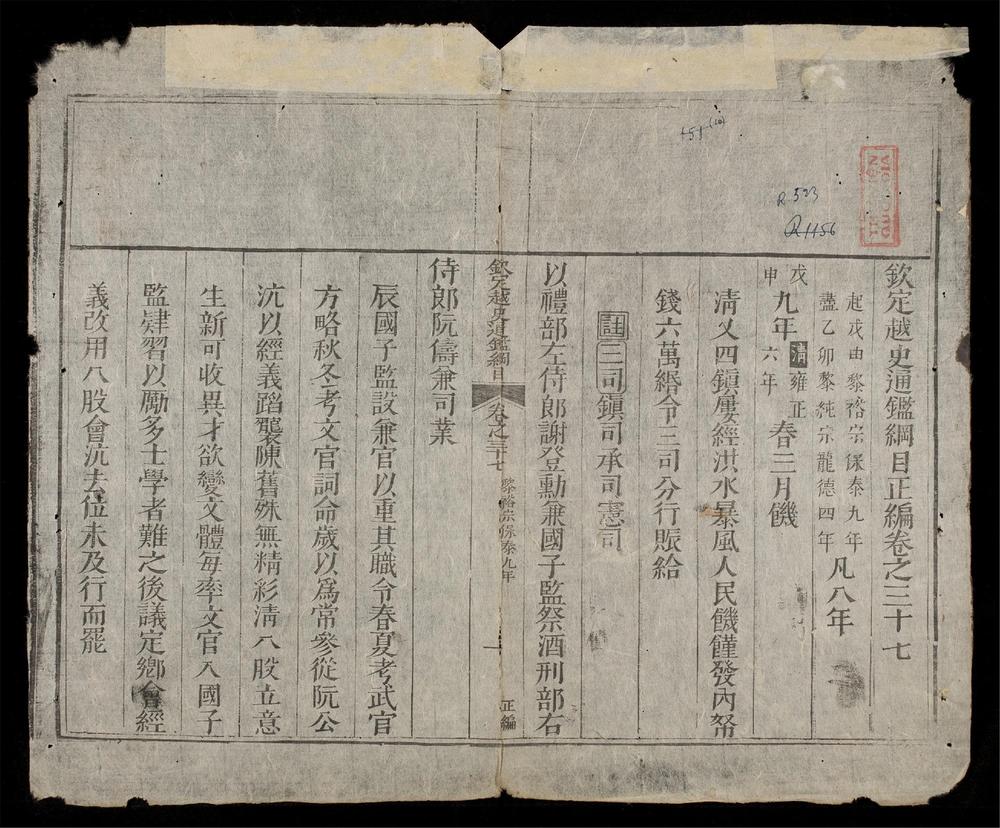 欽定越史通鑑綱目正編卷之三十七
起戊申黎裕宗保泰九年
盡乙卯黎純宗龍德四年
凡八年
戊申
九年
清雍正六年
春三月饑
清乂四鎭屢經洪水暴風人民饑饉發內帑
錢六萬緡令三司分行賑給
註三司鎭司承司憲司
以禮部左侍郎謝登勳兼國子監祭酒刑部右
欽定越史通鑑綱目
卷之三十七
黎裕宗保泰九年
一
正編
侍郎阮儔兼司業
辰國子監設兼官以重其職令春夏考武官
方略秋冬考文官詞命歲以爲常參從阮公
沆以經義蹈襲陳舊殊無精彩清八股立意
生新可收異才欲變文體每率文官入國子
監肄習以勵多士學者難之後議定鄉會經
義改用八股會沆去位未及行而罷
151 (10)
R 523
R 1156